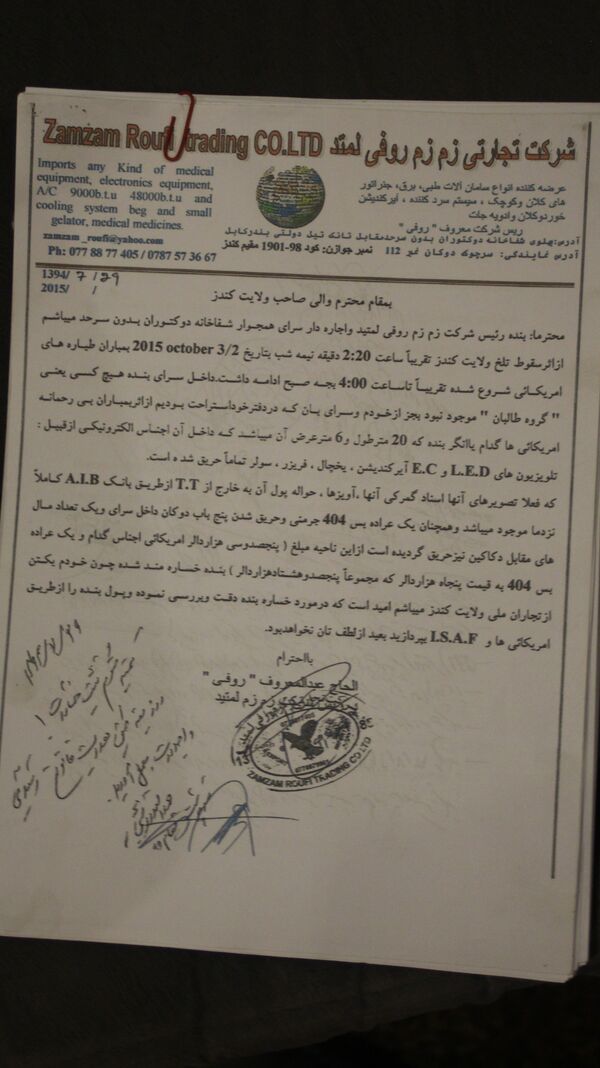 Zamzam Roufi trading CO.LTD شرکت تجارتی زم زم روفی لمتد
Imports any Kind of medical
equipment, electronics equipment,
A/C 9000b.t.u 48000b.t.u and
cooling system beg and small
gelator, medical medicines.
zamzam_roufi@yahoo.com
Ph: 077 88 77 405 / 0787 57 36 67
عرضه کننده انواع سامان آلات طبی، برق، جنراتور
های کلان وکوچک ، سیستم سرد کننده ، ایرکندیشن
خوردوکلان وادویه جات
ریس شرکت معروف " روفی "
آدرس: پهلوی شفاخانه دوکتوران بدون سرحدمقابل تانک تیل دولتی بندرکابل
آدرس نمایندگی: سرچوک دوکان نمبر 112 نمبر جوازن: کود 98-1901 مقیم کندز
1394/ 7 / 29
2015/ /
بمقام محترم والی صاحب ولایت کندز
محترما: بنده رئیس شرکت زم زم روفی لمتید واجاره دار سرای همجوار شفاخانه دوکتوران بدون سرحد میباشم
ازاثرسقوط تلخ ولایت کندز تقریباً ساعت 2:20 دقیقه نیمه شب بتاریخ 3/2 october 2015 بمباران طیاره های
امریکائی شروع شده تقریباً تاساعت 4:00 بجه صبح ادامه داشت.داخل سرای بنده هیچ کسی یعنی
" گروه طالبان " موجود نبود بجز ازخودم وسرای بان که دردفترخوداستراحت بودیم ازاثربمباران بی رحمانه
امریکائی ها گدام یاانگر بنده که 20 مترطول و6 مترعرض آن میباشد که داخل آن اجناس الکترونیکی ازقبیل :
تلویزیون های L.E.D و E.C آیرکندیشن ، یخچال ، فریزر ، سولر تماماً حریق شد ه است.
که فعلا تصویرهای آنها اسناد گمرکی آنها ،آویزها ، حواله پول آن به خارج از T.T ازطریق بانک A.I.B کاملاً
نزدما موجود میباشد وهمچنان یک عراده بس 404 جرمنی وحریق شدن پنج باب دوکان داخل سرای ویک تعداد مال
های مقابل دکاکین نیزحریق گردیده است ازاین ناحیه مبلغ ( پنجصدوسی هزاردالر امریکائی اجناس گدام و یک عراده
بس 404 به قیمت پنجاه هزاردالر که مجموعاً پنجصدوهشتادهزاردالر ) بنده خساره مند شده چون خودم یکتن
ازتجاران ملی ولایت کندز میباشم امید است که درمورد خساره بنده دقت وبررسی نموده وپول بنده را ازطریق
امریکائی ها و I.S.A.F بپردازید بعید ازلطف تان نخواهدبود.
بااحترام
الحاج عبدالمعروف " روفی "
ZAMZAM ROUFI TRADING CO LTD